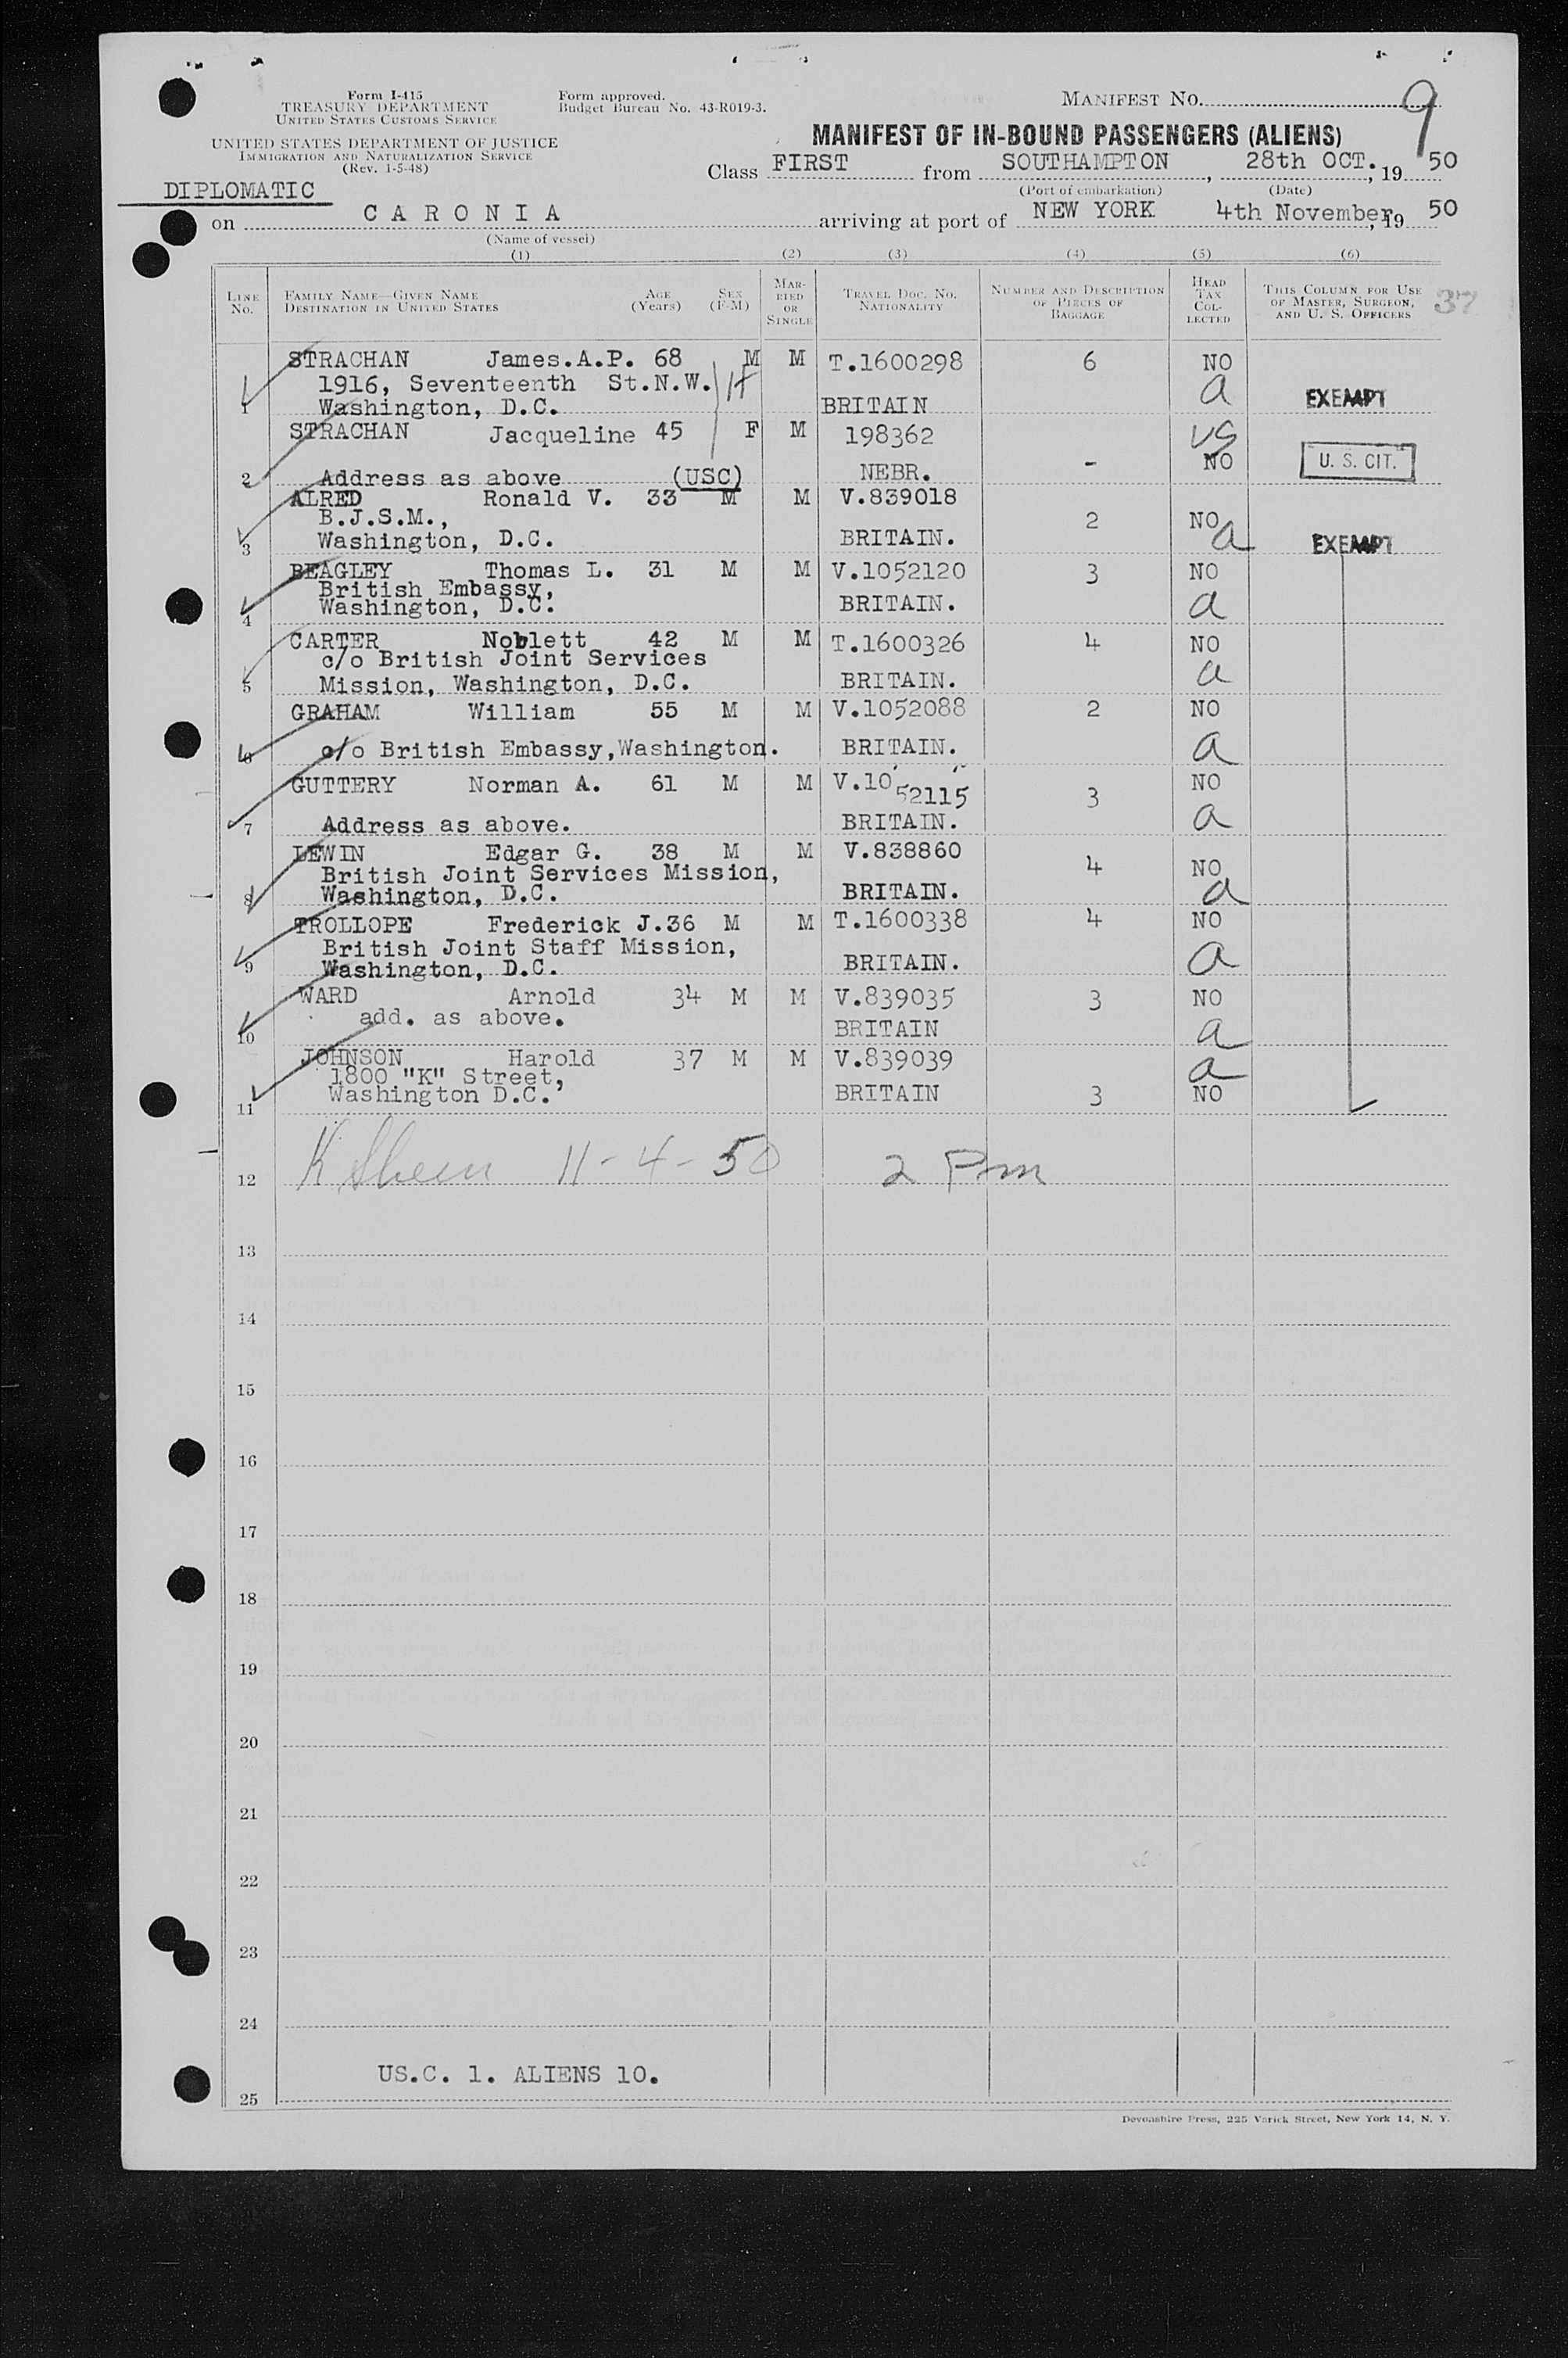 Form I-415
TREASURY DEPARTMENT
UNITED STATES CUSTOMS SERVICE
UNITED STATES DEPARTMENT OF JUSTICE
IMMIGRATION AND NATURALIZATION SERVICE
(Rev. 1-5-48)
Form approved.
Budget Bureau No. 43-R019-3.
MANIFEST NO. 9
MANIFEST OF IN-BOUND PASSENGERS (ALIENS)
Class FIRST from SOUTHAMPTON, 28th OCT., 19 50
(Port of embarkation) (Date)
DIPLOMATIC
on CARONIA arriving at port of NEW YORK 4th November, 19 50
(Name of vessel)
(1) (2) (3) (4) (5) (6)
LINE No. FAMILY NAME—GIVEN NAME DESTINATION IN UNITED STATES AGE (Years) SEX (F-M) MARRIED OR SINGLE TRAVEL DOC. NO. NATIONALITY NUMBER AND DESCRIPTION OF PIECES OF BAGGAGE HEAD TAX COLLECTED THIS COLUMN FOR USE OF MASTER, SURGEON, AND U. S. OFFICERS 37
STRACHAN James.A.P. 68 M M T.1600298 6 NO
1916, Seventeenth St.N.W. a EXEMPT
1 Washington, D.C. BRITAIN
STRACHAN Jacqueline 45 F M 198362 US
2 Address as above (USC) NEBR. - NO U. S. CIT.
ALRED Ronald V. 33 M M V.839018
B.J.S.M., 2 NO
3 Washington, D.C. BRITAIN. a EXEMPT
BEAGLEY Thomas L. 31 M M V.1052120 3 NO
British Embassy,
4 Washington, D.C. BRITAIN. a
CARTER Noblett 42 M M T.1600326 4 NO
c/o British Joint Services
5 Mission, Washington, D.C. BRITAIN. a
GRAHAM William 55 M M V.1052088 2 NO
6 c/o British Embassy,Washington. BRITAIN. a
GUTTERY Norman A. 61 M M V.1052115 3 NO
7 Address as above. BRITAIN. a
LEWIN Edgar G. 38 M M V.838860
British Joint Services Mission, 4 NO
8 Washington, D.C. BRITAIN. a
TROLLOPE Frederick J.36 M M T.1600338 4 NO
British Joint Staff Mission,
9 Washington, D.C. BRITAIN. a
WARD Arnold 34 M M V.839035 3 NO
add. as above.
10 BRITAIN a
JOHNSON Harold 37 M M V.839039 a
1800 "K" Street,
11 Washington D.C. BRITAIN 3 NO
12 11-4-50 2 Pm
13
14
15
16
17
18
19
20
21
22
23
24
US.C. 1. ALIENS 10.
25
Devonshire Press, 225 Varick Street, New York 14, N. Y.